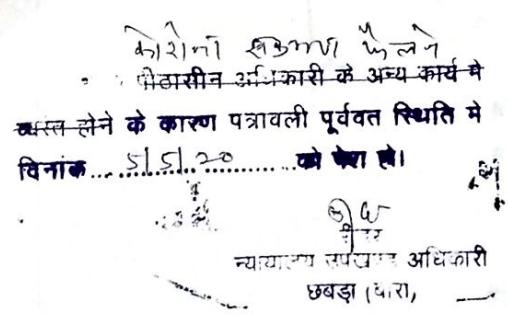 कोरोना संक्रमण फैलने
पीठासीन अधिकारी के अन्य कार्य मे
व्यस्त होने के कारण पत्रावली पूर्ववत स्थिति मे
दिनांक....5/5/20............को पेश हो।
रीडर
न्यायालय उपखण्ड अधिकारी
छबड़ा (बारा)